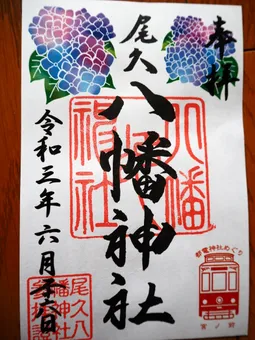 奉拝
尾久
八幡神社
令和三年六月二十六日
八幡
神社
尾久八
幡神社
都電神社めぐり
宮ノ前